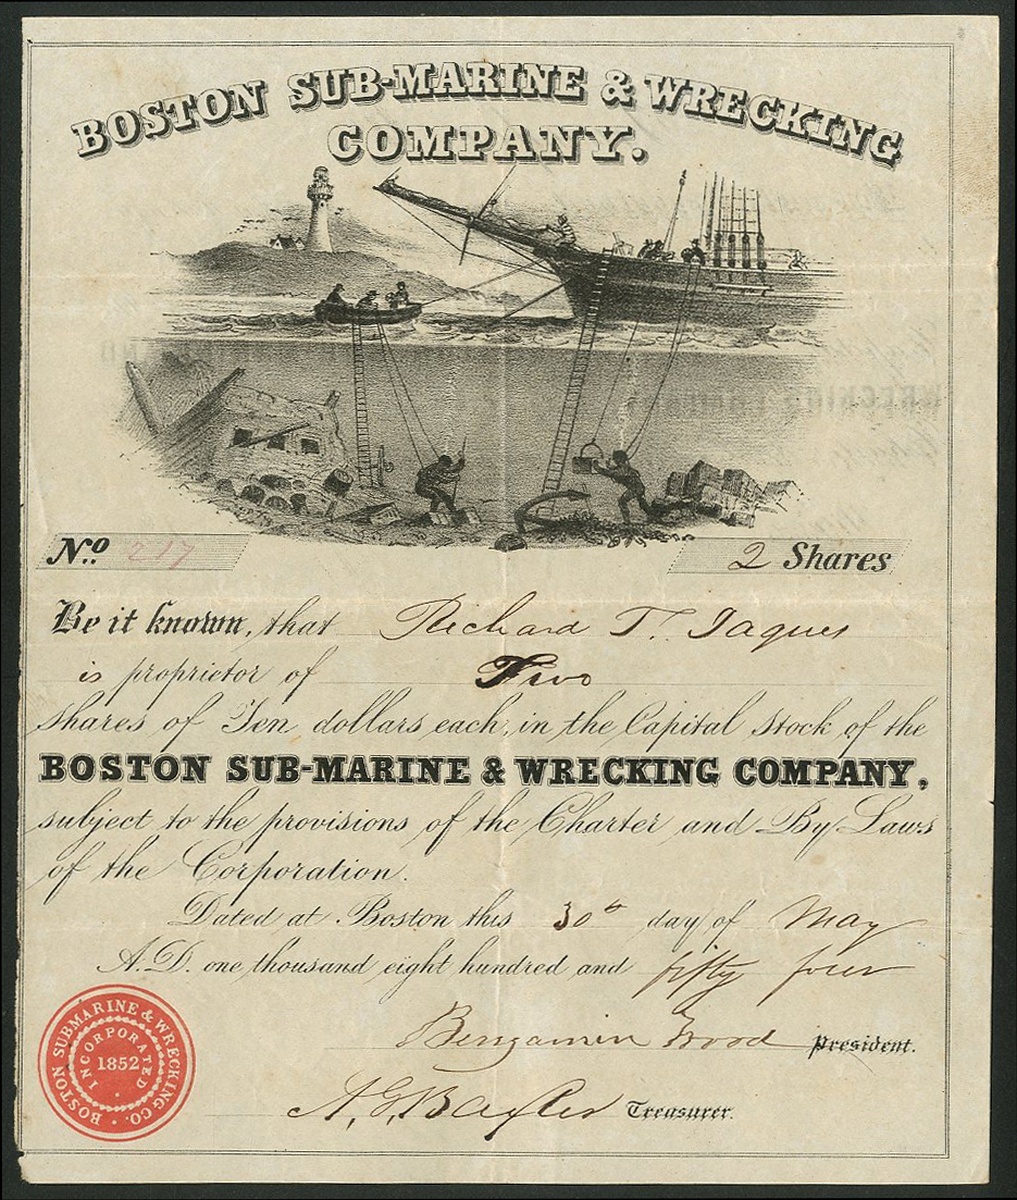 BOSTON SUB-MARINE & WRECKING
COMPANY.
No. 217
2 Shares
Be it known, that Richard T. Jaques
is proprietor of Two
shares of Ten dollars each, in the Capital Stock of the
BOSTON SUB-MARINE & WRECKING COMPANY,
subject to the provisions of the Charter and By Laws
of the Corporation.
Dated at Boston this 30th day of May
A.D. one thousand eight hundred and fifty four
Benjamin Wood President.
A. G. Treasurer.
BOSTON SUBMARINE & WRECKING CO.
INCORPORATED
1852